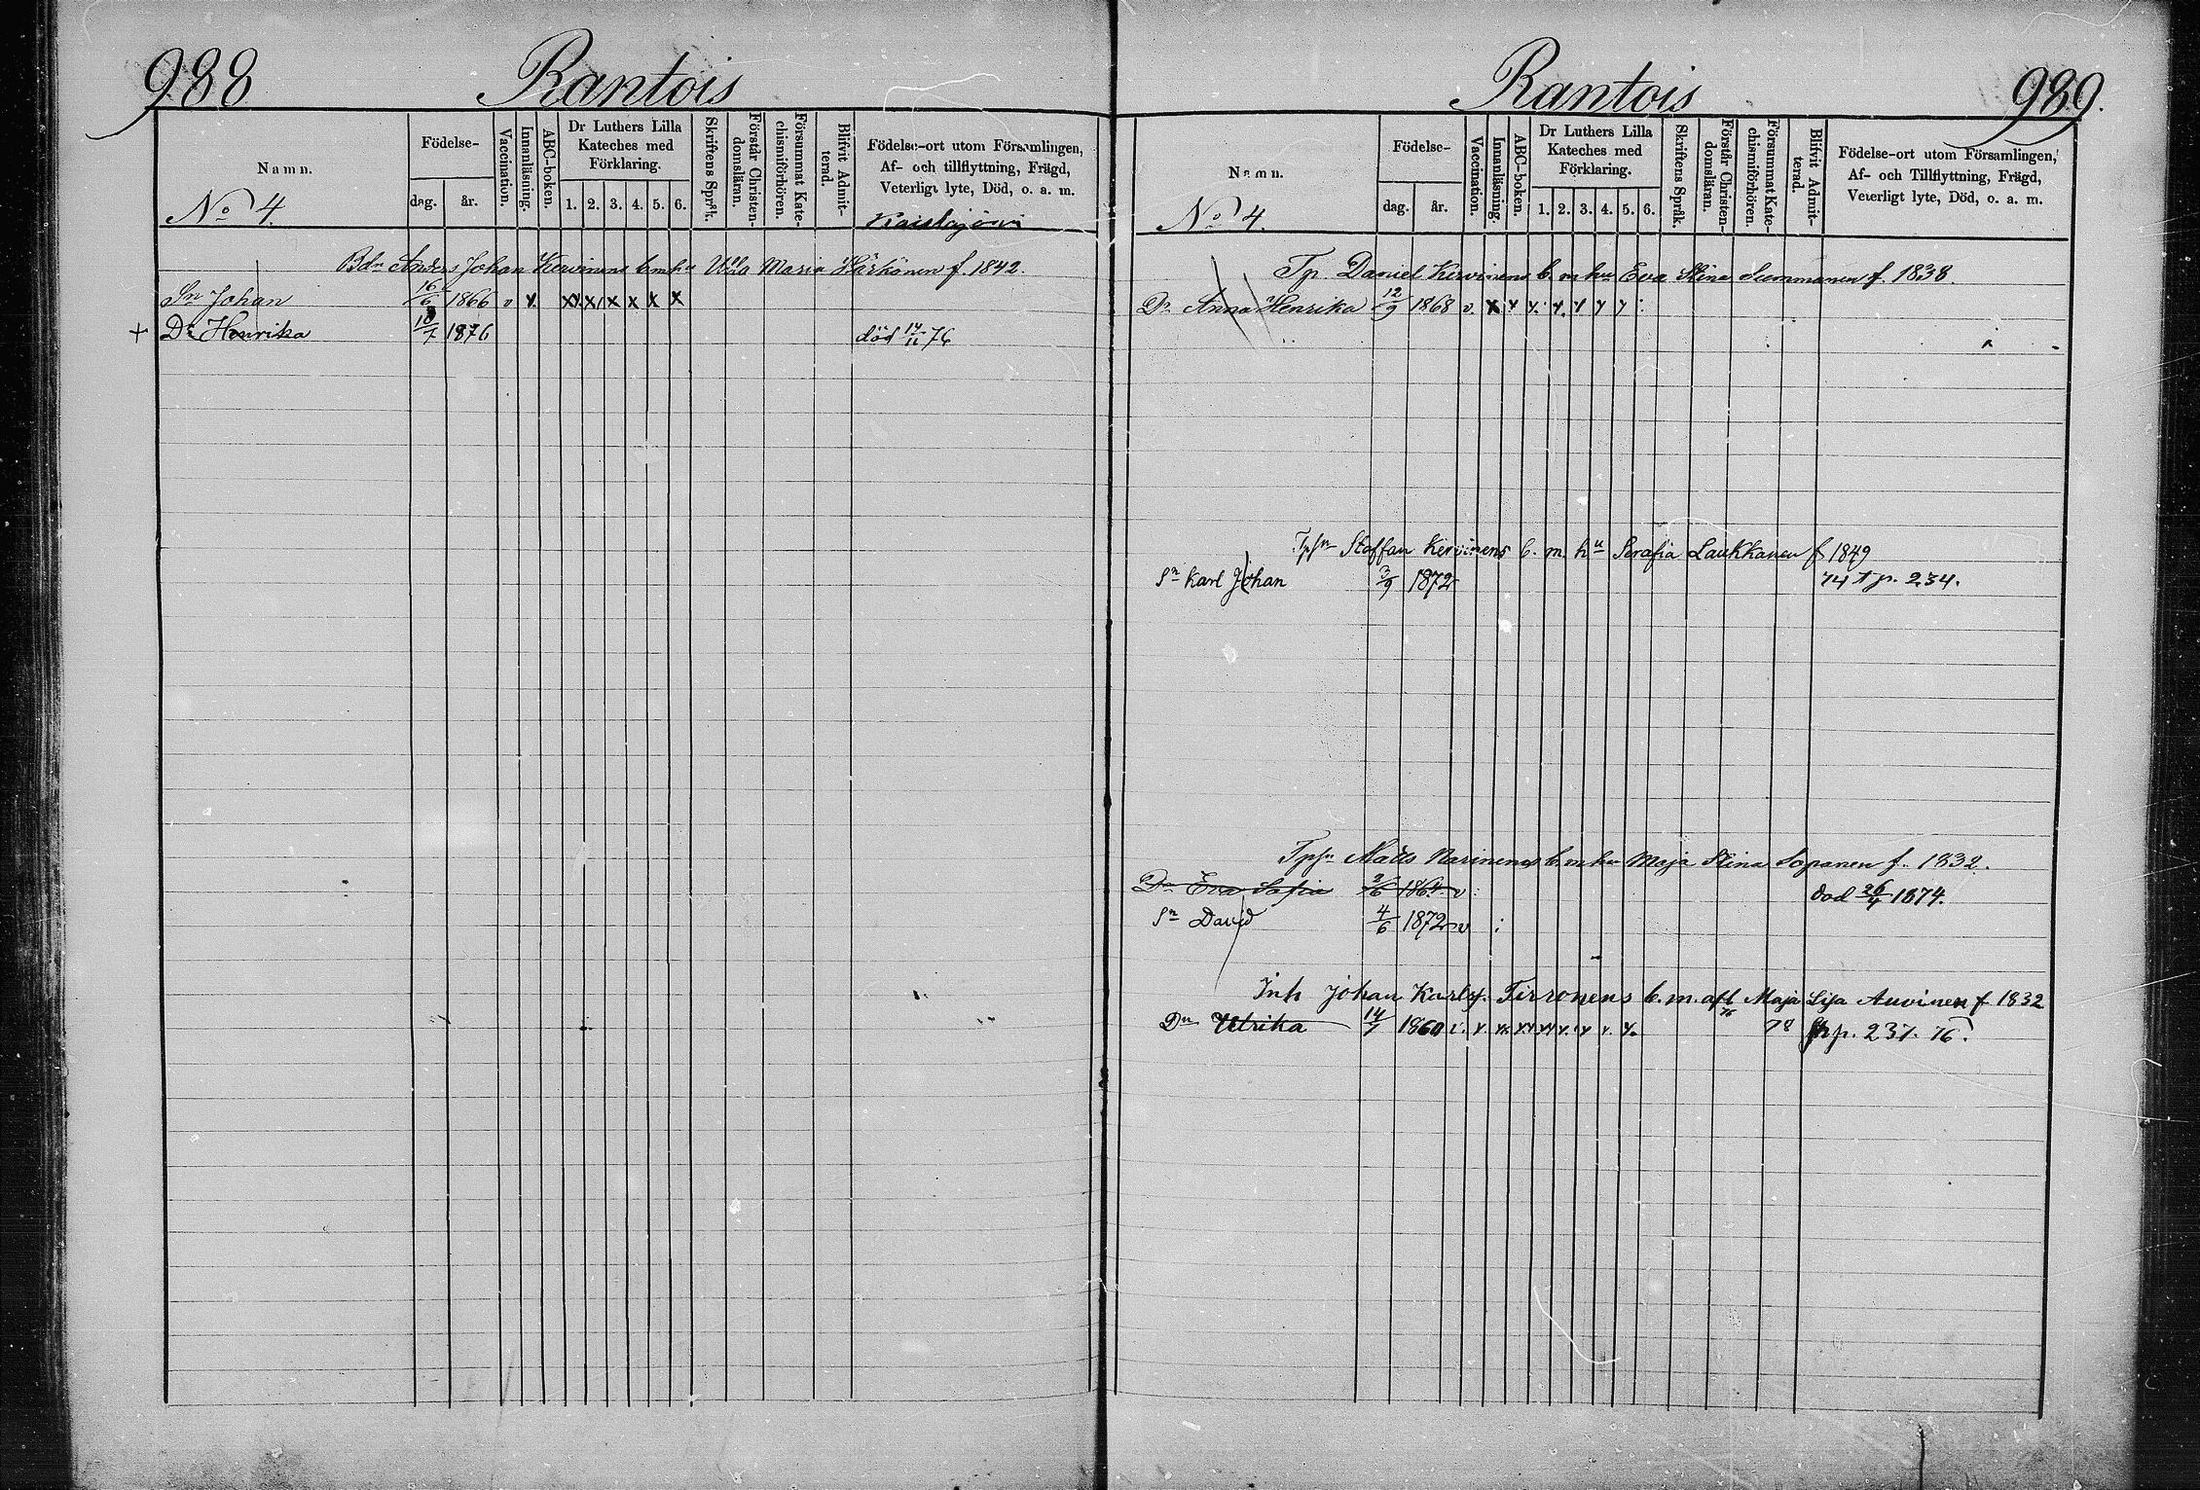 988
Rantois
Namn.
Födelse-
dag.
år.
Vaccination.
Innanläsning.
ABC-boken.
Dr Luthers Lilla
Kateches med
Förklaring.
1. 2. 3. 4. 5. 6.
Skriftens Språk.
Förstår Christen-
domsläran.
Försummat Kate-
chismiförhören.
Blifvit Admit-
terad.
Födelse-ort utom Församlingen,
Af- och tillflyttning, Frägd,
Veterligt lyte, Död, o. a. m.
No 4.
Bdn Anders Johan Kervinens b m hu Ulla Maria Härkönen f. 1842.
Sn Johan 16/6 1866 v x. x x x x x x
+ Dr Henrika 10/7 1876 död 14/11 76
Rantois
989.
Namn.
Födelse-
dag.
år.
Vaccination.
Innanläsning.
ABC-boken.
Dr Luthers Lilla
Kateches med
Förklaring.
1. 2. 3. 4. 5. 6.
Skriftens Språk.
Förstår Christen-
domsläran.
Försummat Kate-
chismiförhören.
Blifvit Admit-
terad.
Födelse-ort utom Församlingen,
Af- och Tillflyttning, Frägd,
Veterligt lyte, Död, o. a. m.
No 4.
Tp. Daniel Kervinens b. m hu Eva Stina Summanen f. 1838.
Dr Anna Henrika 12/9 1868 v. x x x x x x x
Tphn Staffan Kervinens b. m. hu Serafia Laukkanen f 1849
Sn Karl Johan 3/9 1872 74 t p. 234.
Tphn Matts Narinens b. m hu Maja Stina Sopanen f. 1832.
Dr Eva Sofia 2/6 1864 v död 26/4 1874.
Sn David 4/6 1872 v
Inh Johan Karlsf. Tirronens b. m. afl Maja Lisa Auvinen f 1832
Dn Ulrika 14/7 1860 v. x. x. x x x. x x. x. 78 p. 237. 76.